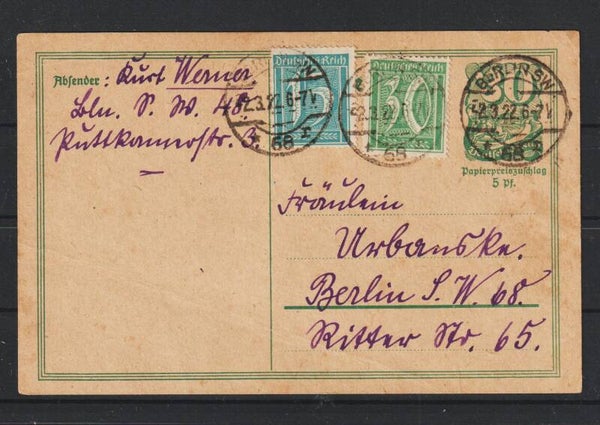 Absender: Kurt Werner
Bln. S. W. 48
Puttkamerstr. 3.
Deutsches Reich
15
Deutsches Reich
30
BERLIN SW
2.3.22.6-7V.
* 68 z
30
Papierpreiszuschlag
5 Pf.
Fräulein
Urbanske.
Berlin S. W. 68.
Ritter Str. 65.